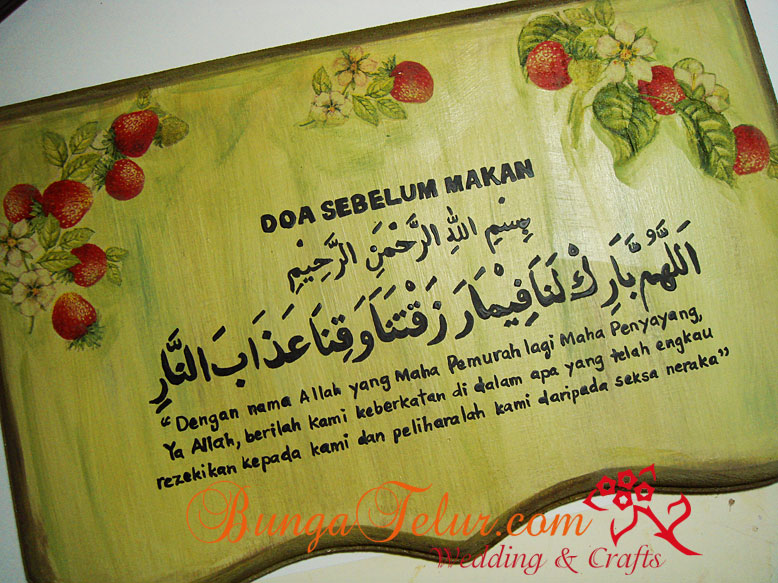 DOA SEBELUM MAKAN
بِسْمِ اللهِ الرَّحْمَنِ الرَّحِيْمِ
اَللَّهُمَّ بَارِكْ لَنَا فِيْمَا رَزَقْتَنَا وَقِنَا عَذَابَ النَّارِ
“Dengan nama Allah yang Maha Pemurah lagi Maha Penyayang,
Ya Allah, berilah kami keberkatan di dalam apa yang telah engkau
rezekikan kepada kami dan peliharalah kami daripada seksa neraka”
BungaTelur.com
Wedding & Crafts